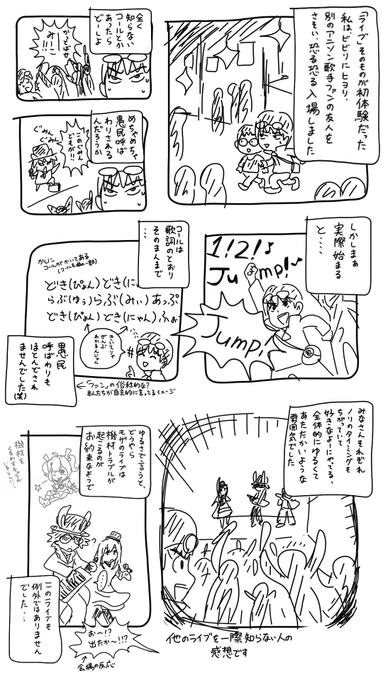 「ライブ」そのものが初体験だった
私はビビりにヒヨり、
別のアニソン歌手ファンの友人を
さそい、恐る恐る入場しました
全く
知らない
コールとか
あったら
どーしよ
みー!!こ
めちゃめちゃ
愚民呼ば
わりされる
んだろうか
ぐみーん
ぐみーん
しかしまぁ
実際始まる
と…
1!2!♪
Jump!♪
Jump!
コールは
歌詞のとおり
そのまんまで
どき(ぴょん)どき(にゃん)
らぶ(ゆぅ)らぶ(みぃ)あっぷ
どき(ぴょん)どき(にゃん)ふぉ
愚民
呼ばわりも
ほとんどされ
ませんでした(笑)
「ファン」の俗称的な?
私たちが自主的に言ってるイメージ
みなさんもそれぞれ
ノリのタイミングも
ちがっていて、
好きなよーにやってる、
全体的にゆるくて
あたたかいような
雰囲気でした
他のライブを一際知らない人の
感想です
ゆるさで言うと、
どうやら
モザのライブは
機材トラブルが
起こるのが
お約束なようで
機材を
このライブも
例外ではありません
でした…
お〜!?
出たか〜!!?
会場の反応